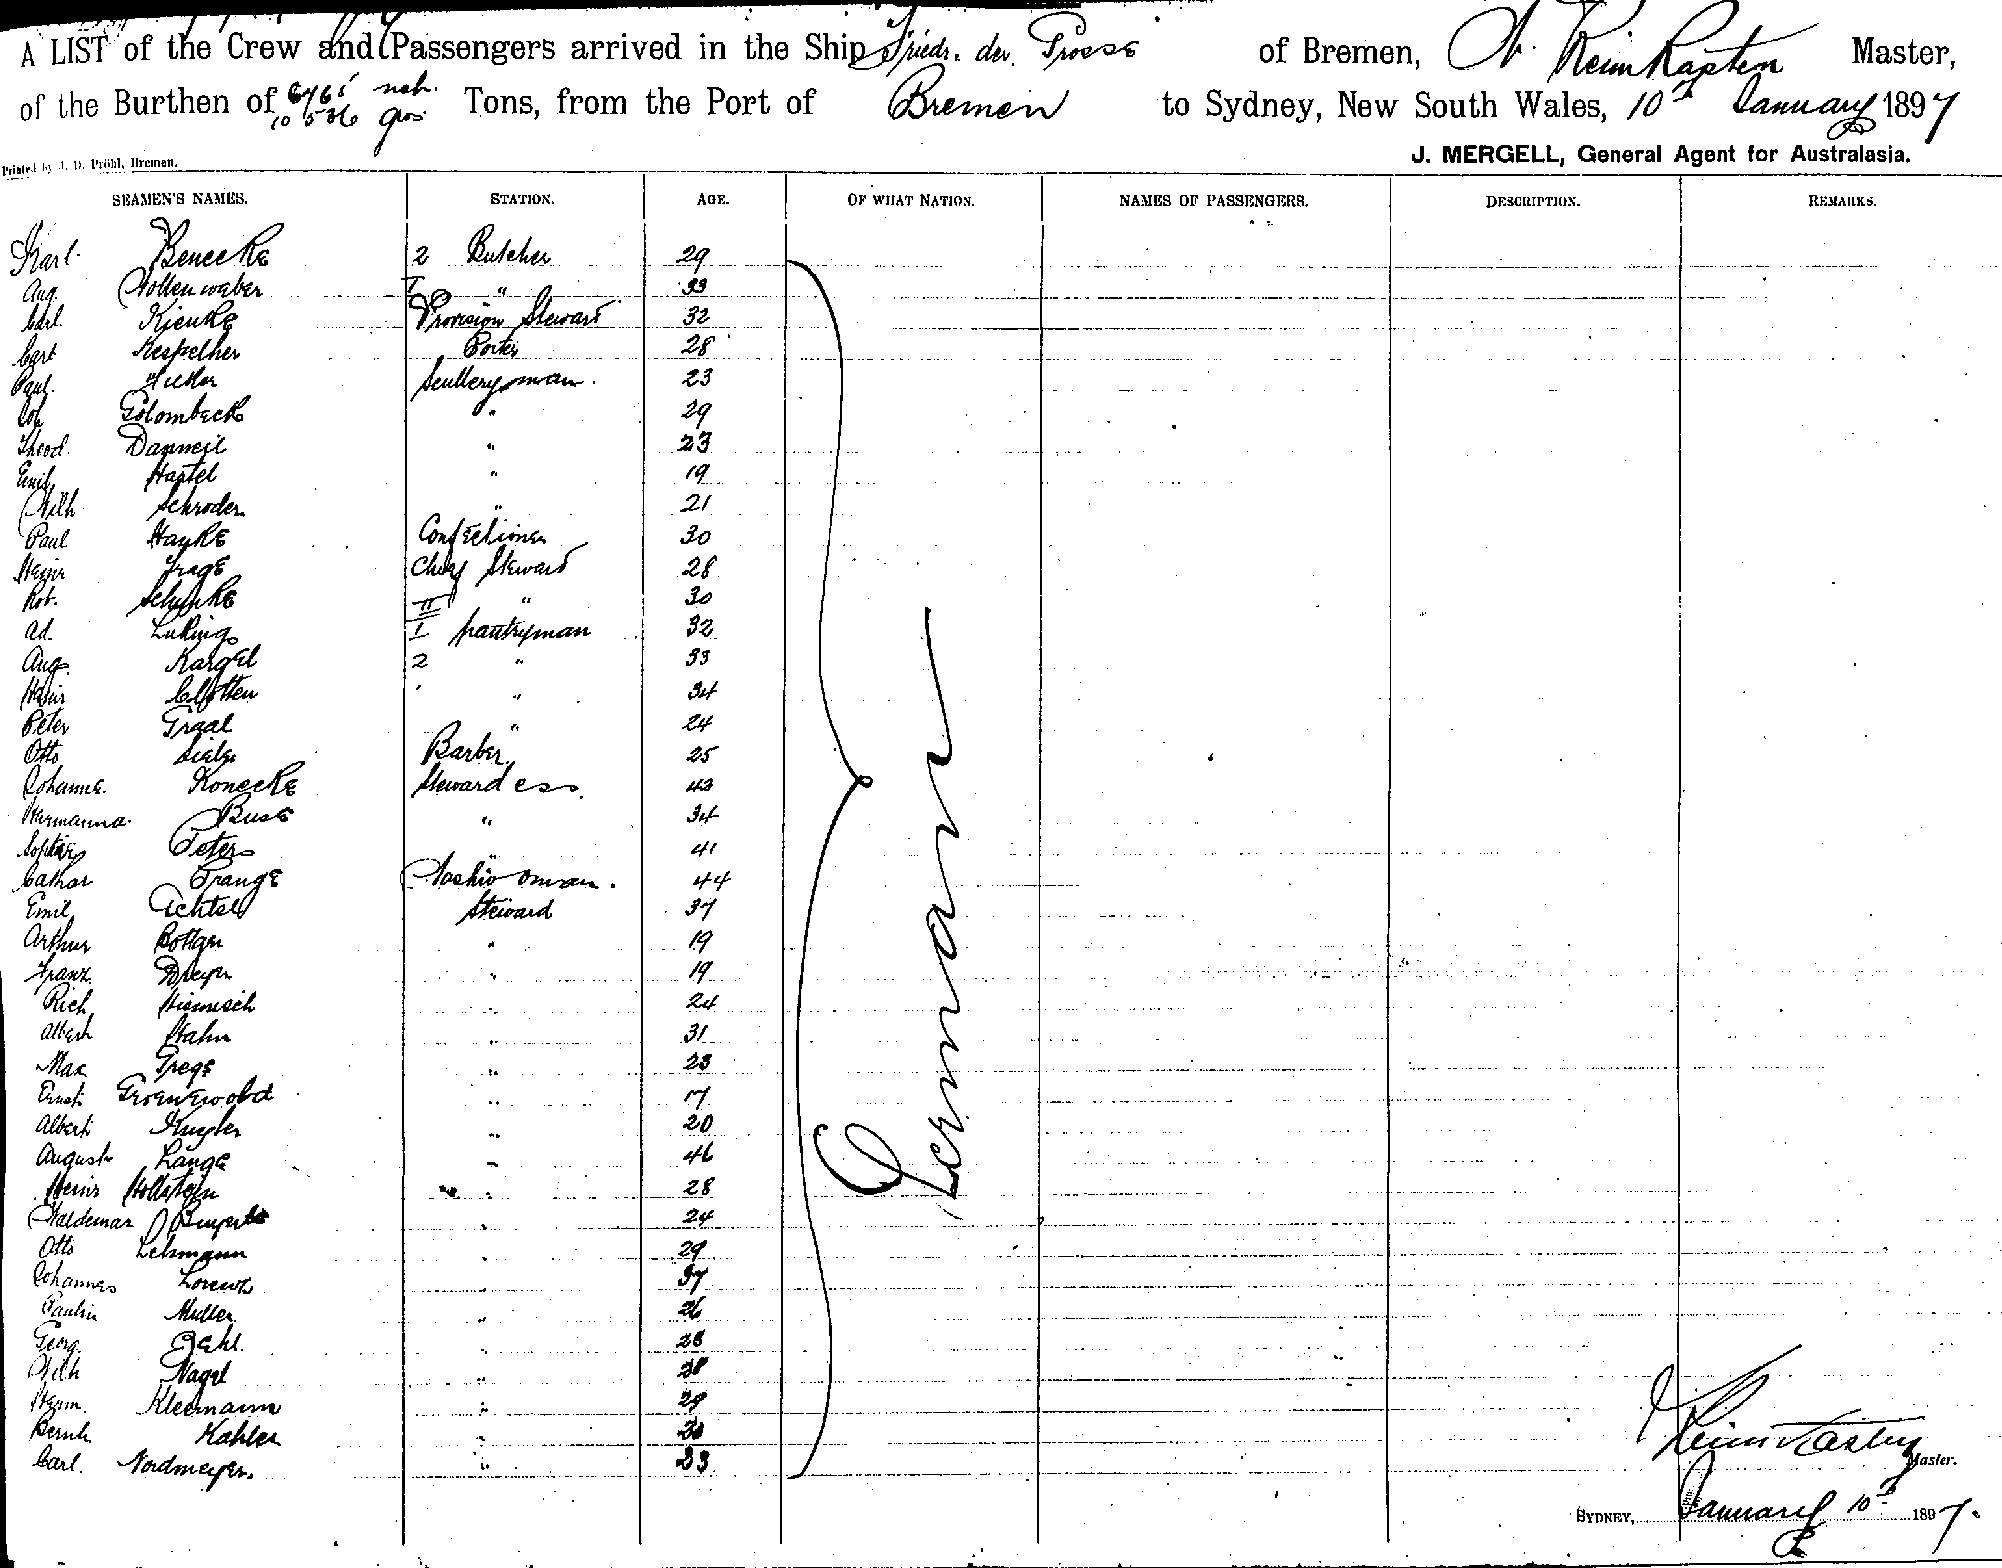 A LIST of the Crew and Passengers arrived in the Ship Friedr. der Grosse of Bremen, Master,
of the Burthen of gros Tons, from the Port of Bremen to Sydney, New South Wales, 10th January 1897
Printed by J. D. Pröhl, Bremen.
J. MERGELL, General Agent for Australasia.
SEAMEN'S NAMES. STATION. AGE. OF WHAT NATION. NAMES OF PASSENGERS. DESCRIPTION. REMARKS.
Karl Benecke 2 Butcher 29
Aug. I " 33
Carl Kienke Provision Steward 32
Carl Porter 28
Paul Sculleryman. 23
Golombeck " 29
Theod. Danneil " 23
Emil Hartel " 19
Wilh Schroder " 21
Paul Hayke Confectioner 30
Heinr Frage Chief Steward 28
Rob. Schipke II " 30
Ad. Lukings I pantryman 32
Aug. Kargel 2 " 33
Heinr Clotten " " 34
Peter Graal " 24
Otto Barber 25
Johanne Konecke Stewardess. 43
Hermanna Buse " 34
Sophie Peters " 41
Cathar Prange Washwoman. 44
Emil Echtel Steward 37
Arthur Bottger " 19
Franz Dreyer " 19
Rich " 24
Albert Hahn " 31
Max " 23
Ernst Groenewold " 17
Albert Kugler " 20
August Lange " 46
Heinr Hollstein " 28
Waldemar " 24
Otto Lehmann " 29
Johannes Lorenz " 37
Paulin Muller " 26
Georg. " 28
Wilh Nagel " 28
Herm. Kleemann " 29
Bernh. Kahler "
Carl. Nordmeyer. " 23
German
Master.
SYDNEY, January 10th 1897.